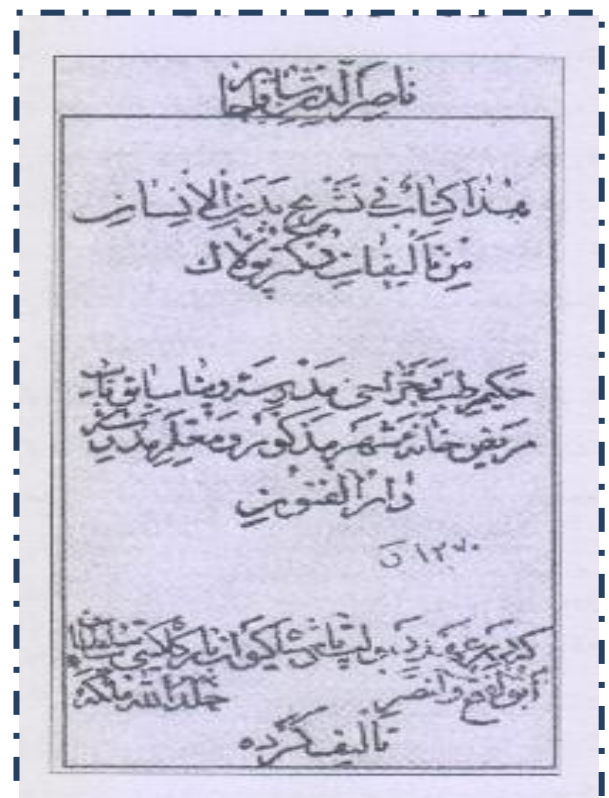 ناصر الدین شاه قاجار
هذا کتاب فی تشریح بدن الانسان
من تألیفات دکتر پولاک
حکیم طب و جراحی مدرسه وینا سابق نایب
مریض خانه شهر مذکور و معلم مدرسه
دار الفنون
۱۲۷۰ ق
سلطان
ابو الفتح و النصر خلد الله ملکه
تألیف کرده